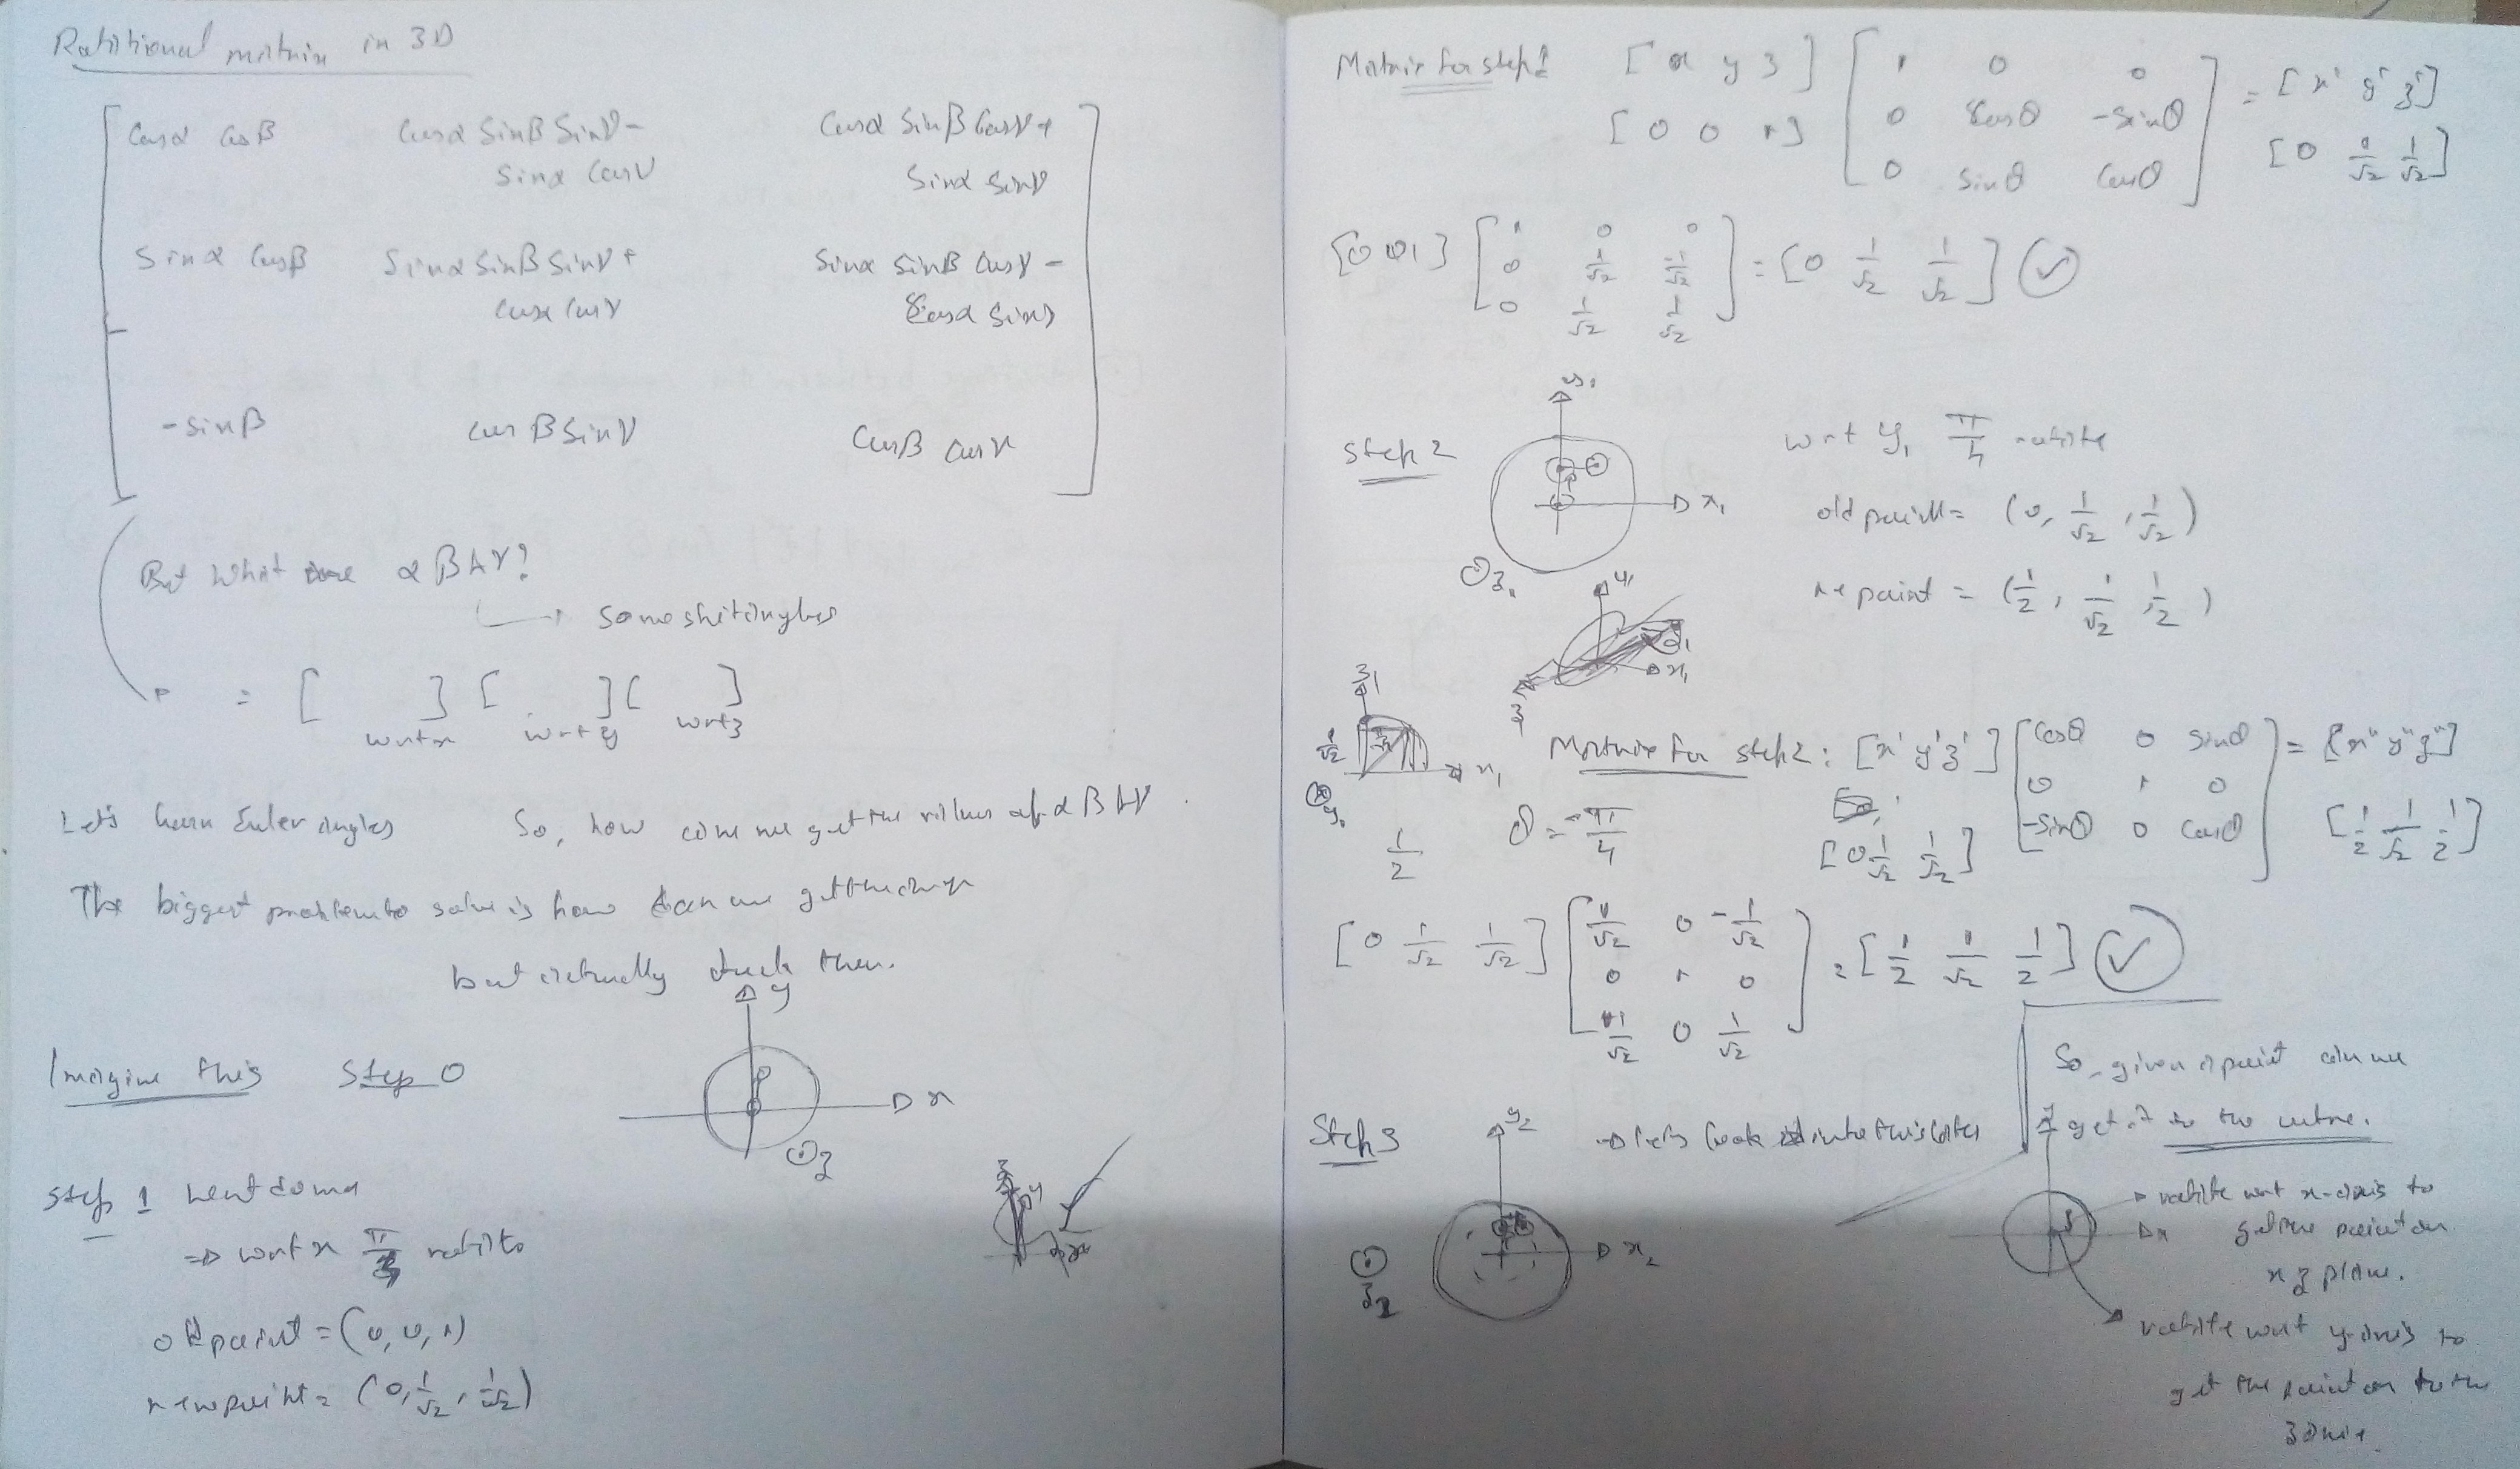 Rotational matrix in 3D
cosα cosβ cosα sinβ sinγ - sinα cosγ cosα sinβ cosγ + sinα sinγ
sinα cosβ sinα sinβ sinγ + cosα cosγ sinα sinβ cosγ - cosα sinγ
-sinβ cosβ sinγ cosβ cosγ
But what are α β & γ?
some shit angles
= [ wrt x ] [ wrt y ] [ wrt z ]
Let's learn Euler angles So, how can we get the values of α β & γ.
The biggest problem to solve is how can we get the
but actually then.
y
x
z
Imagine this Step 0
Step 1
⇒ wrt x π/4 rotate
old point = (0, 0, 1)
new point = (0, 1/√2, 1/√2)
Matrix for step 1 [x y z] [1 0 0; 0 cosθ -sinθ; 0 sinθ cosθ] = [x' y' z']
[0 0 1] [0 1/√2 1/√2]
[0 0 1] [1 0 0; 0 1/√2 -1/√2; 0 1/√2 1/√2] = [0 1/√2 1/√2] ✓
Step 2 y₁ x₁ z₁
wrt y₁ π/4 rotate
old point = (0, 1/√2, 1/√2)
ne point = (1/2, 1/√2, 1/2)
Matrix for step 2: [x' y' z'] [cosθ 0 sinθ; 0 1 0; -sinθ 0 cosθ] = [x'' y'' z'']
1/2 θ = -π/4 [0 1/√2 1/√2] [1/2 1/√2 1/2]
[0 1/√2 1/√2] [1/√2 0 -1/√2; 0 1 0; 1/√2 0 1/√2] = [1/2 1/√2 1/2] ✓
Step 3 y₂ x₂ z₂
→ lets look into this later
So, given a point can we
get it to the centre.
→ rotate wrt x-axis to
get the point on
x z plane.
rotate wrt y-axis to
get the point on to the
z axis.